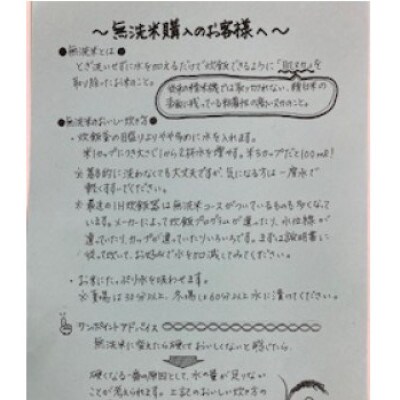 ～無洗米購入のお客様へ～
●無洗米とは●
とぎ洗いせずに水を加えるだけで炊飯できるように「肌ヌカ」を
取り除いたお米のこと。
従来の精米機では取り切れない、精白米の
表面に残っている粘着性の高いヌカのこと。
●無洗米のおいしい炊き方●
・炊飯釜の目盛りよりやや多めに水を入れます。
米1カップにつき大さじ1から2杯水を増やす。米5カップだと100ml!
※基本的に洗わなくても大丈夫ですが、気になる方は一度水で
軽くすすいでください。
※最近のIH炊飯器は無洗米コースがついているものも多くなって
います。メーカーによって炊飯プログラムが違ったり、水位線が
違っていたり、カップが違っていたりいろいろです。まずは説明書に
従って炊いて、お好みで水を加減してみてください。
・お米にたっぷり水を吸わせます。
※夏場は30分以上、冬場は60分以上水に漬けてください。
ワンポイントアドバイス
無洗米に替えたら硬くておいしくないと感じたら、
硬くなる一番の原因として、水の量が足りない
ことが考えられます。上記のおいしい炊き方の